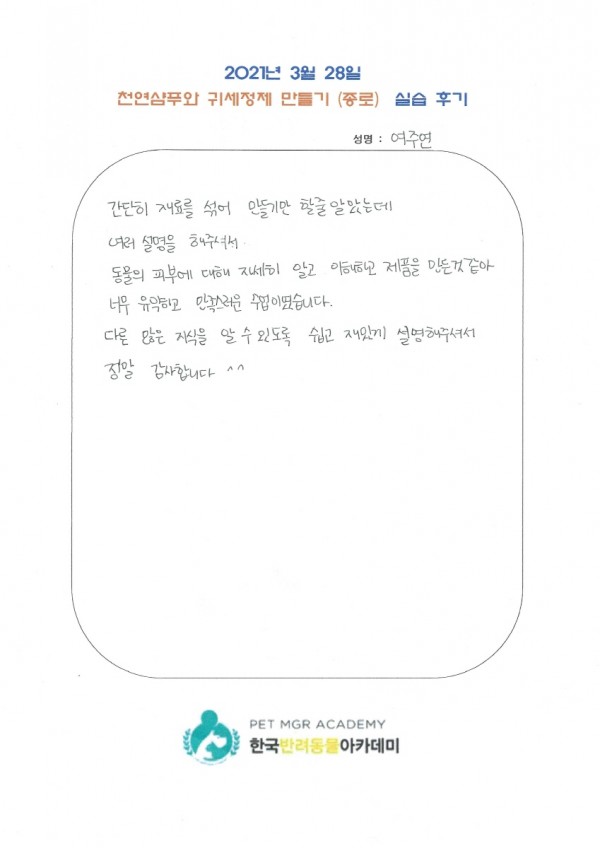 2021년 3월 28일
천연샴푸와 귀세정제 만들기 (종로) 실습 후기
성명 : 여주연
간단히 재료를 섞어 만들기만 할줄 알았는데
여러 설명을 해주셔서
동물의 피부에 대해 자세히 알고 이해하고 제품을 만든것 같아
너무 유익하고 만족스러운 수업이였습니다.
다른 많은 지식을 알 수 있도록 쉽고 재밌게 설명해주셔서
정말 감사합니다 ^^
PET MGR ACADEMY
한국반려동물아카데미